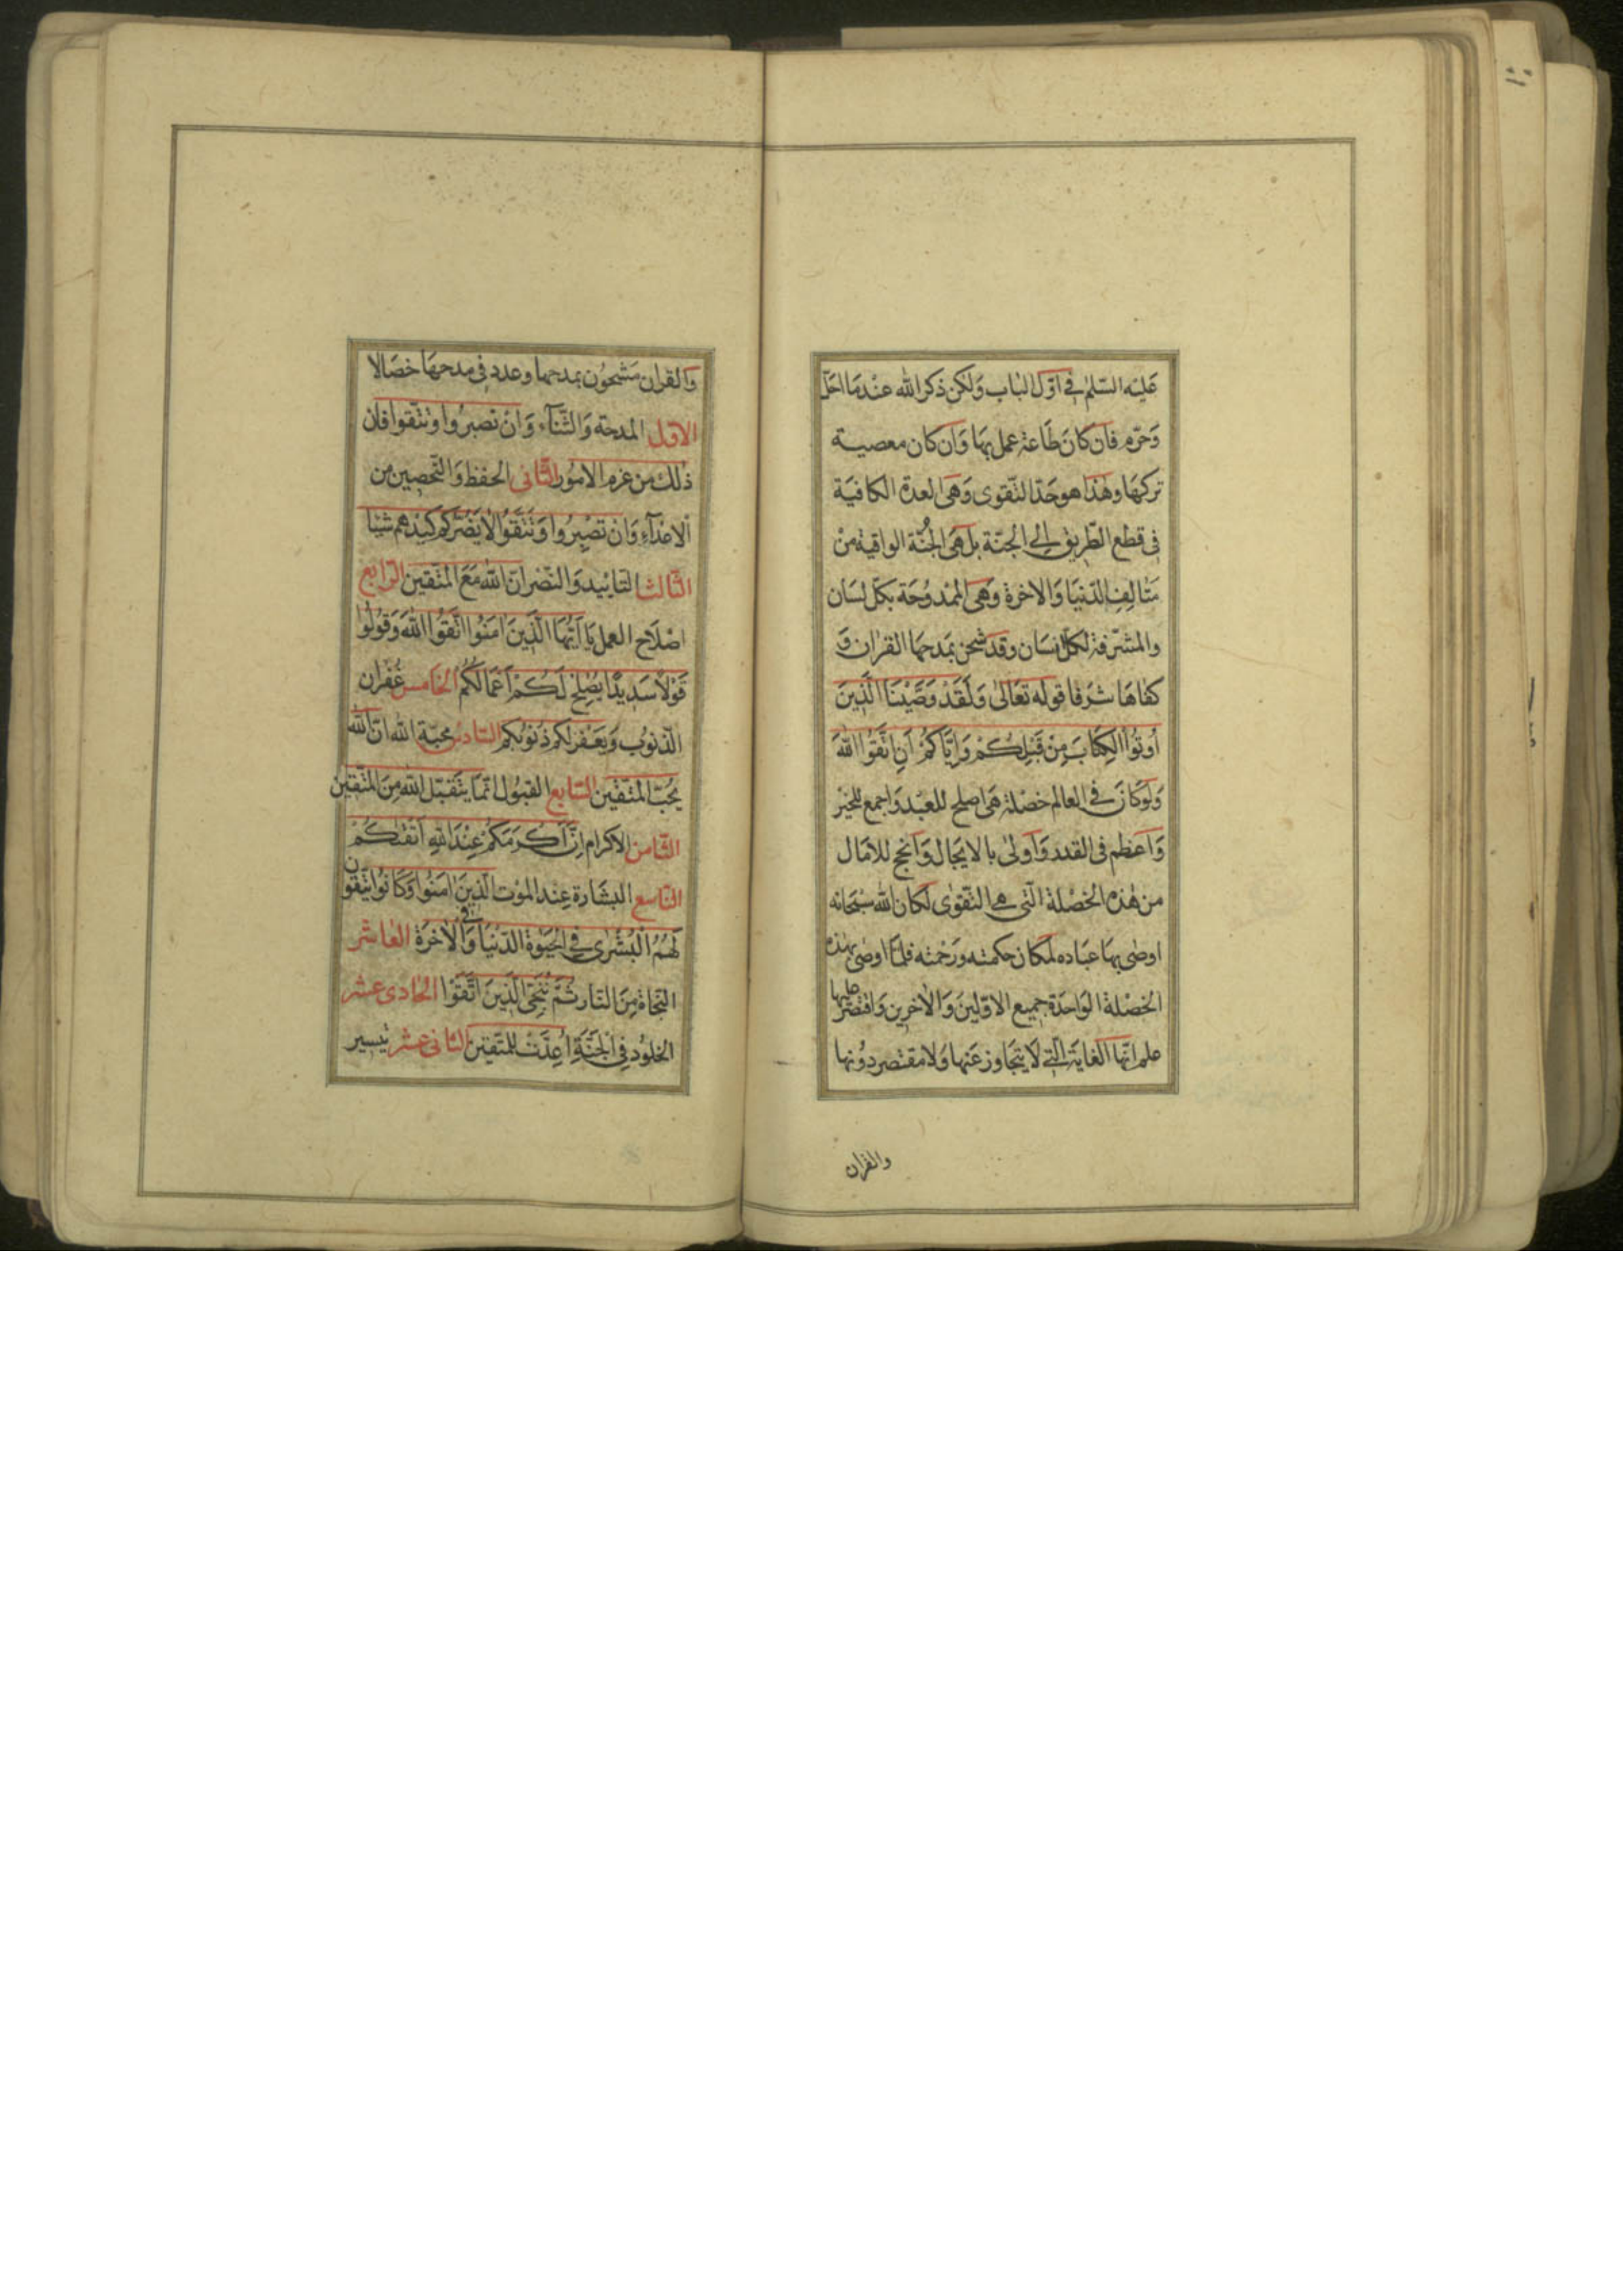 عليه السّلم في اوّل الباب وَلكن ذكر الله عندمَا احَلّ
وَحرّم فان كانَ طَاعة عمل بهَا وَان كان معصية
تركهَا وهٰذا هو حَدّ التّقوى وَهى العدة الكافيَة
فى قطع الطّريق الى الجنّة بل هى الجُنّة الواقية منْ
مَتالِف الدّنيَا وَالاخرة وَهى الممْدُوحَة بكلّ لسَان
والمشرّفة لكلّ انسَان وقد شحن بمَدحهَا القرٰان وَ
كفٰاهَا شرَفا قوله تعَالىٰ وَلَقَدْ وَصَّيْنَا الَّذِينَ
اُوتُوا الكِتَابَ مِنْ قَبْلِكُمْ وَاِيَّاكُمْ اَنِ اتَّقُوا اللهَ
وَلوكانَ في العالم خصْلة هى اصلح للعبْد وَاجمع للخيْر
وَاعظم فى القدر وَاولىٰ بالايجَال وَانجح للاٰمَال
من هٰذه الخصْلة الّتى هى التّقوٰى لكان الله سبْحَانه
اوصٰى بهَا عبَاده لمكان حكمته ورَحْمته فلمّا اوصٰى بهٰذه
الخصْلة الوَاحدَة جميع الاوّلينَ وَالاٰخرين وَاقتصر عليها
علم انّها الغايَة الّتى لَا يتجَاوز عَنها وَلا مقتصر دُونها
والقرٰان
وَالقرٰان مَشحُون بمدحها وعدد فى مدحهَا خصَالا
الاوّل المدحة وَالثّنَآء وَانْ تصْبرُوا وَتتّقوا فانّ
ذٰلكَ من عزم الامُور الثّانى الحفظ وَالتّحصِين من
الاعدَآءِ وَانْ تصْبِرُوا وَتَتَّقُوا لَا يَضُرّكم كَيْدهم شيْئا
الثّالث التّاييد وَالنّصْر انّ اللهَ مَعَ المتّقين الرّابع
اصْلَاح العمل يَا ايّهَا الَّذِينَ اٰمَنُوا اتَّقُوا اللهَ وَقُولُوا
قَوْلًا سَدِيدًا يُصْلِحْ لَكُمْ اَعْمَالَكُمْ الخَامس غُفْران
الذّنوُب وَيَغْفرْ لكم ذنُوبكم السّادس محبّة الله انّ الله
يُحبّ المتّقين السّابع القبُول انّمَا يتَقبّل الله مِنَ المتّقِين
الثّامن الاكرام اِنَّ اَكْرَمَكُمْ عِنْدَ اللهِ اَتْقٰيكُمْ
التّاسع البشَارة عِند الموْت الّذينَ اٰمَنُوا وَكَانُوا يتّقون
لَهُمُ الْبُشْرٰى في الحَيٰوة الدّنْيَا وَفى الاٰخرَة العَاشر
النّجَاة مِنَ النّار ثُمَّ نُنَجّى الّذينَ اتَّقَوْا الحَادى عشر
الخلوُد فى الْجَنَّةِ اُعِدَّتْ لِلمتّقين الثّانى عشر تيسِير